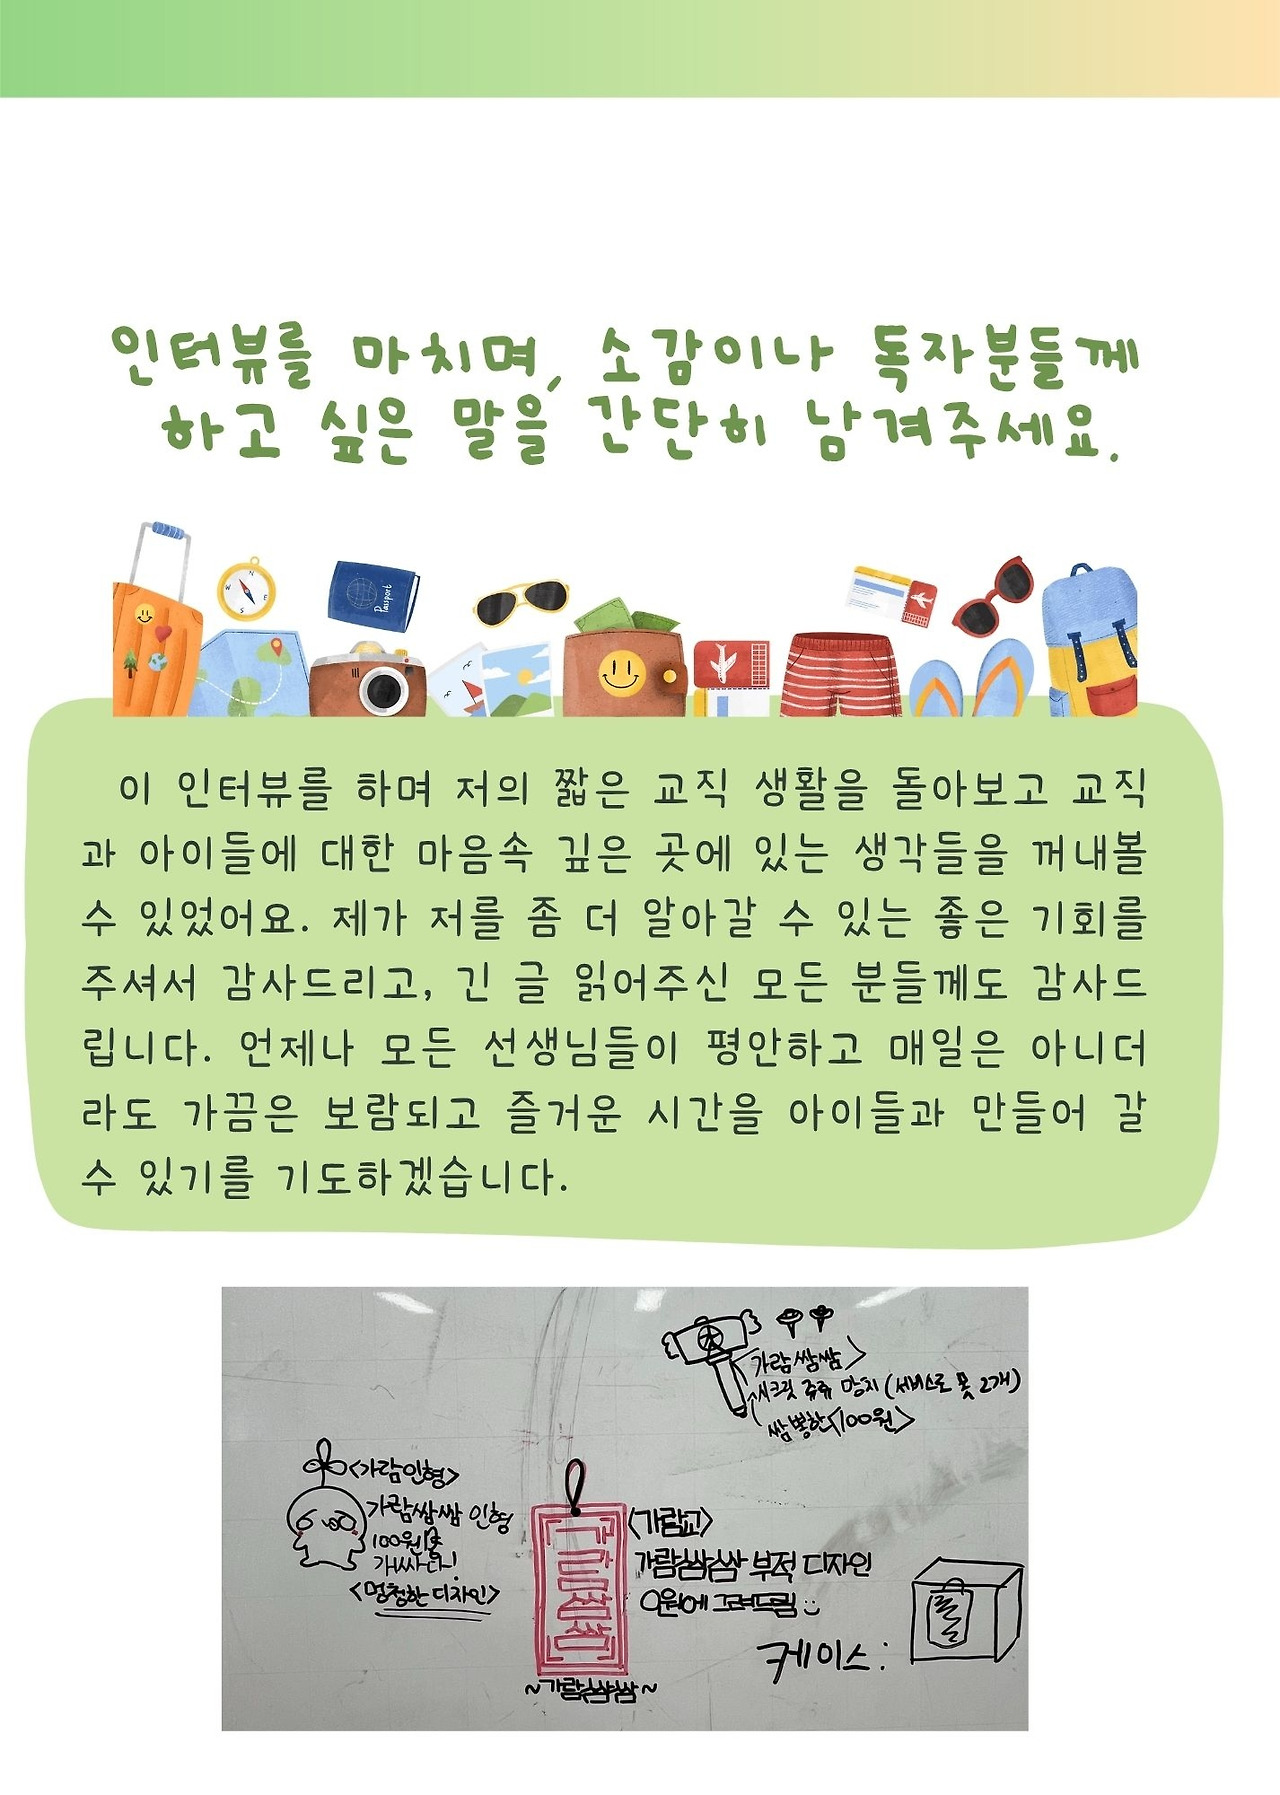 인터뷰를 마치며, 소감이나 독자분들께
하고 싶은 말을 간단히 남겨주세요.
Passport
이 인터뷰를 하며 저의 짧은 교직 생활을 돌아보고 교직
과 아이들에 대한 마음속 깊은 곳에 있는 생각들을 꺼내볼
수 있었어요. 제가 저를 좀 더 알아갈 수 있는 좋은 기회를
주셔서 감사드리고, 긴 글 읽어주신 모든 분들께도 감사드
립니다. 언제나 모든 선생님들이 평안하고 매일은 아니더
라도 가끔은 보람되고 즐거운 시간을 아이들과 만들어 갈
수 있기를 기도하겠습니다.
가람쌈쌈>
시크릿 쥬쥬 망치 (서비스로 못 2개)
쌈뽕한<100원>
<가람인형>
가람쌈쌈 인형
100원
개싸다!
<멍청한 디자인>
가람쌈쌈
<가람교>
가람쌈쌈 부적 디자인
0원에 그려드림
케이스:
~가람쌈쌈~